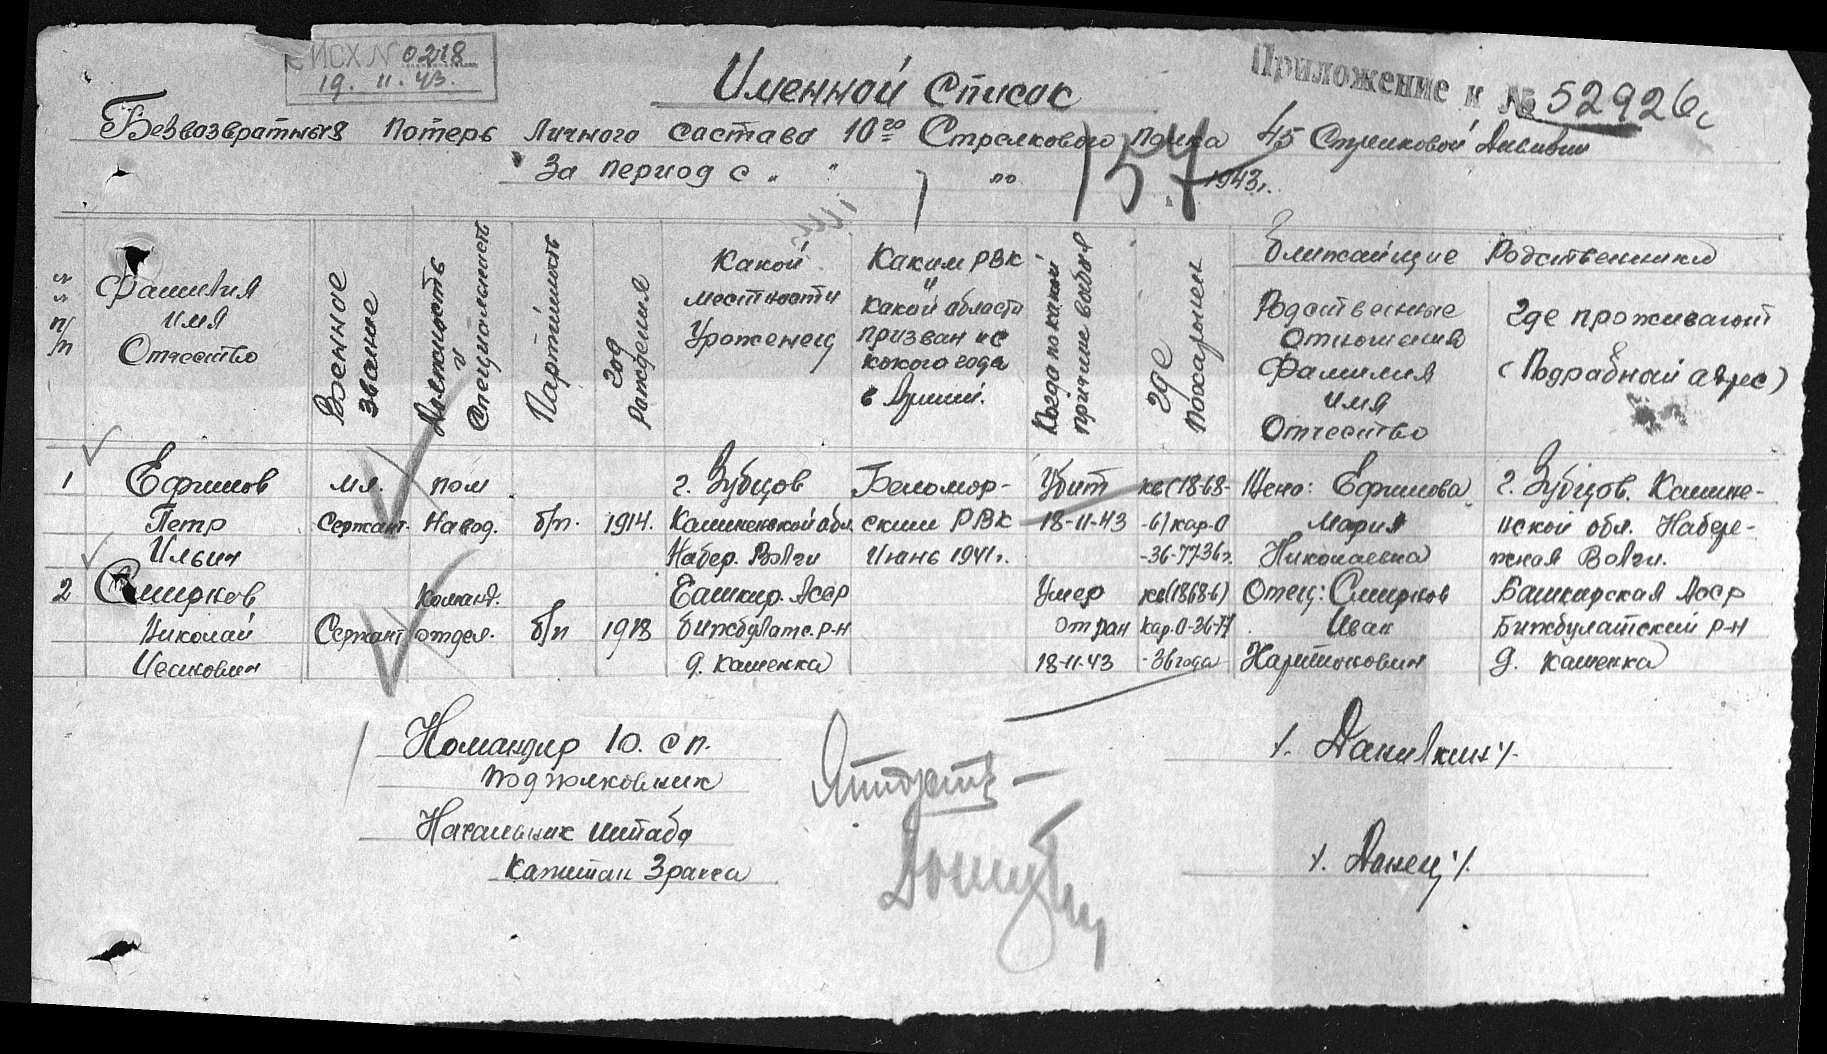 ИСХ N 0218
19. 11. 43.
Приложение к № 52926с
Именной Список
Безвозвратных потерь Личного состава 10го Стрелкового полка 45 Стрелковой Дивизии
За период с " " по 1943г.
154
№ № п/п
Фамилия
имя
Отчество
Военное звание
Должность и специальность
Партийность
год рождения
Какой
местности
Уроженец
Каким РВК
и
какой области
призван и с
какого года
в Армии.
Когда по какой причине выбыл
Где похоронен
Ближайщие Родственники
Родственные
Отношения
Фамилия
имя
Отчество
Где проживают
(Подробный адрес)
1 Ефимов мл. пом г. Зубцов Беломор- Убит кв(18-68- Жена: Ефимова г. Зубцов. Калине-
Петр Сержант. Навод. б/п. 1914. Калиненской обл. ским РВК 18-11-43 -6) кар-О Мария нской обл. Набере-
Ильич Набер. Волги Июнь 1941г. -36-77-36г. Николаевна жная Волги.
2 Смирнов Команд. Башкир. Асср Умер кв(1868-6) Отец: Смирнов Башкирская Асср
Николай Сержант отдел. б/п 1918 бижбулатс. р-н от ран кар. О-36-77 Иван Бижбулатский р-н
Иванович д. Каменка 18-11-43 -36 года Харитонович д. Каменка
Командир 10. сп. /. Данилкин /.
подполковник
Начальник штаба
Капитан /. Донец /.